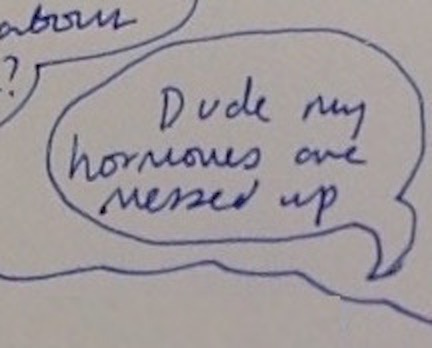 about
?
Dude my
hormones are
messed up